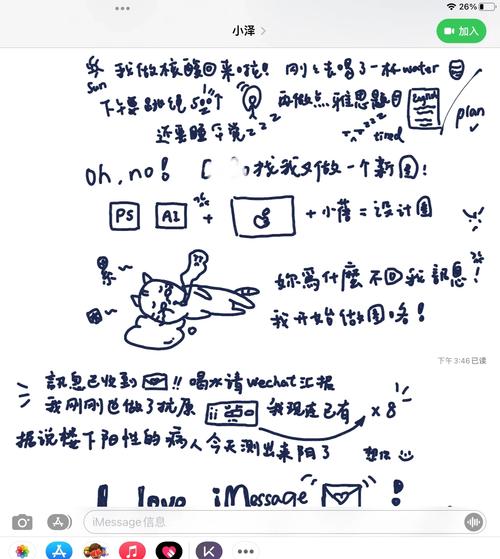 26%
小泽 >
加入
我做核酸回来啦! 刚刚去喝了一杯water
Sun
下午要跳绳500个 再做点雅思题目
English
plan
还要睡午觉zzz
zzz
tired
Oh, no! 找我又做一个新图!
PS AI + + 小蓓 = 设计图
累~
困~
妳為什麼不回我訊息!
我开始做图咯!
下午3:46已读
訊息已收到 !! 喝水请wechat汇报
我刚刚也做了抗原 我现在已有 x8
据说楼下阳性的病人今天测出来阳了
I love iMessage !
iMessage信息